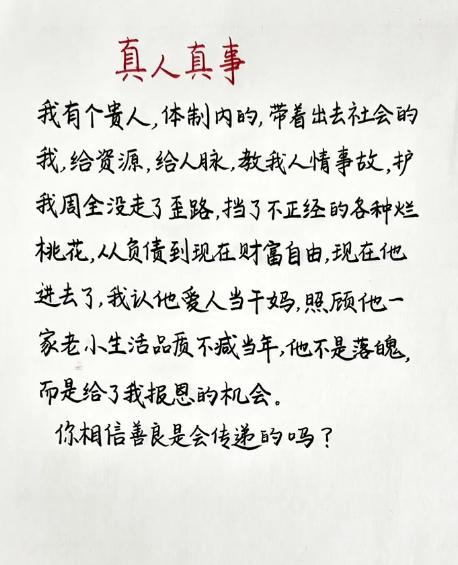 真人真事
我有个贵人,体制内的,带着出去社会的
我,给资源,给人脉,教我人情事故,护
我周全没走了歪路,挡了不正经的各种烂
桃花,从负债到现在财富自由,现在他
进去了,我认他爱人当干妈,照顾他一
家老小生活品质不减当年,他不是落魄,
而是给了我报恩的机会。
你相信善良是会传递的吗?